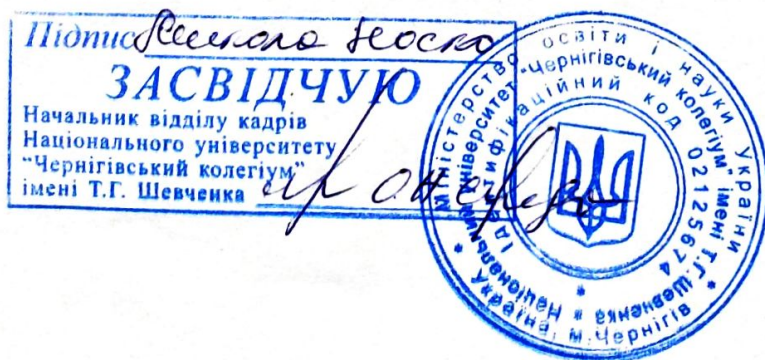 Підпис Микола Носко
ЗАСВІДЧУЮ
Начальник відділу кадрів
Національного університету
"Чернігівський колегіум"
імені Т.Г. Шевченка
Міністерство освіти і науки України
* Україна, м.Чернігів *
Національний університет "Чернігівський колегіум" імені Т.Г.Шевченка *
Ідентифікаційний код 02125674